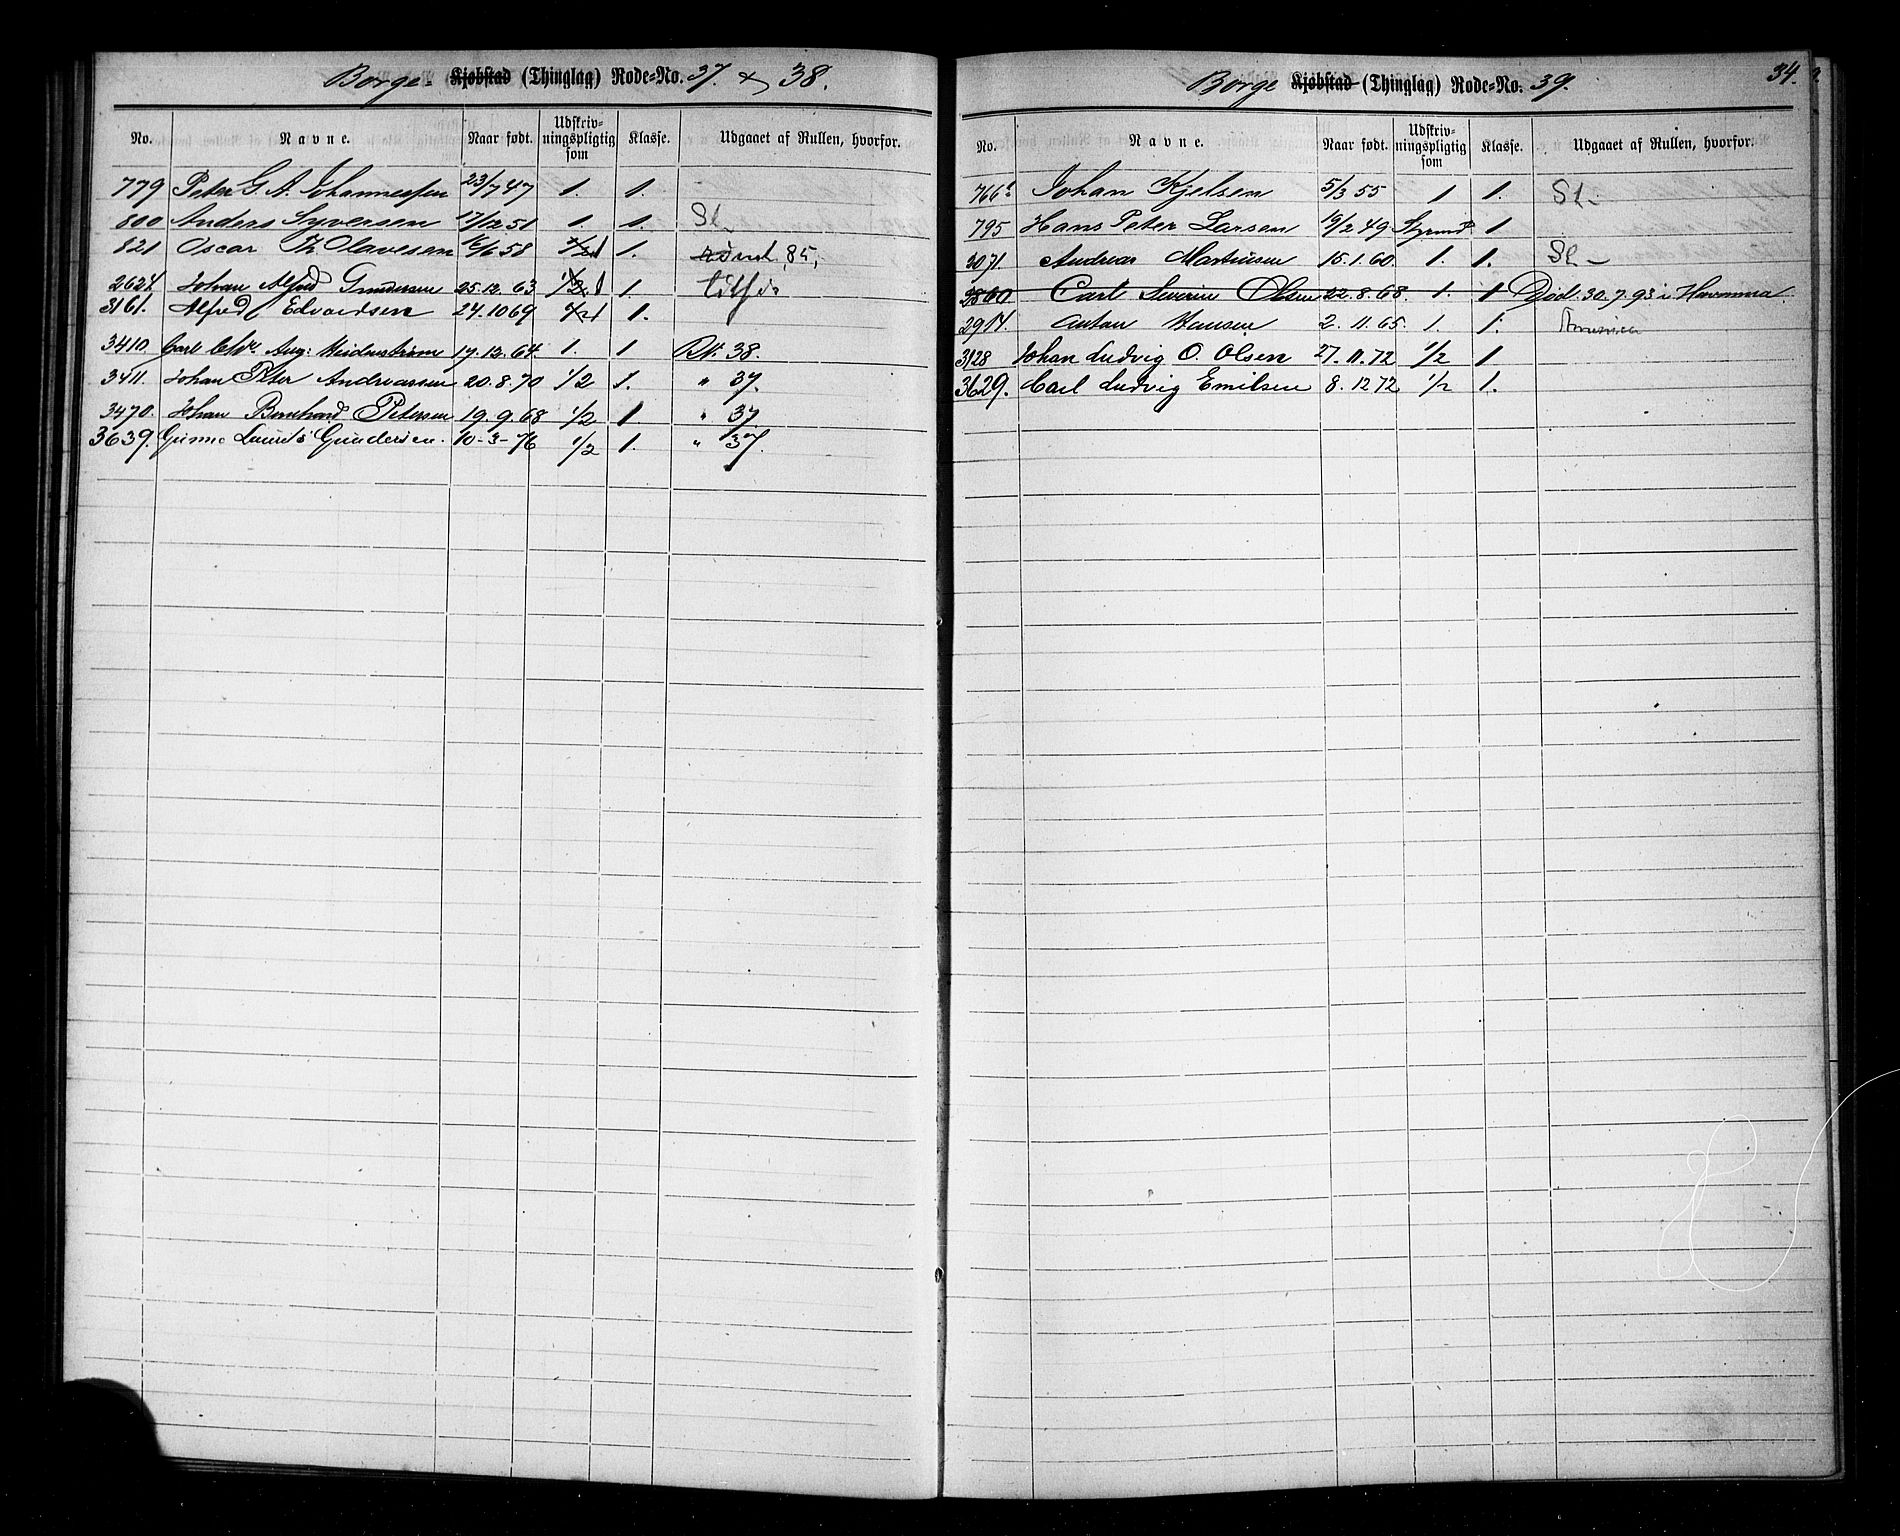 Borge. Kjøbstad (Thinglag) Rode-No. 37. & 38.
No. Navne. Naar født. Udskrivningspligtig som Klasse. Udgaaet af Rullen, hvorfor.
779 Peter G. A. Johannessen 23/7 47 1. 1.
800 Anders Syversen 17/12 51 1. 1. Sl.
821 Oscar Th Olavesen 16/6 58 1/2 1 1. 85,
2624. Johan Alfred Gundersen 25.12.63 1/2 1 1.
3161. Alfred Edvardsen 24.10 69 1/2 1 1.
3410. Carl Aug: 17.12.64. 1. 1 RN. 38.
3411. Johan Peter Andreassen 20.8.70 1/2 1. " 37.
3470. Johan Bernhard Petersen 19.9.68 1/2 1. " 37
3639. Gunne Laurits Gundersen. 10-3-76 1/2 1. " 37.
34.
Borge Kjøbstad (Thinglag) Rode-No. 39.
No. Navne. Naar født. Udskrivningspligtig som Klasse. Udgaaet af Rullen, hvorfor.
766 Johan Kjelsen 5/3 55 1 1. Sl.
795 Hans Peter Larsen 19/2 49 Styrmd 1
3071. Andreas Martinsen 15.1.60. 1. 1. Sl.
2860 Carl Severin Olsen 22.8.68. 1. 1 Død 30.7.93 i Havanna
2917. Anton Hansen 2.11.65. 1. 1. Amerika
3128 Johan Ludvig O. Olsen 27.11.72 1/2 1
3629. Carl Ludvig Emilsen 8.12 72 1/2 1.